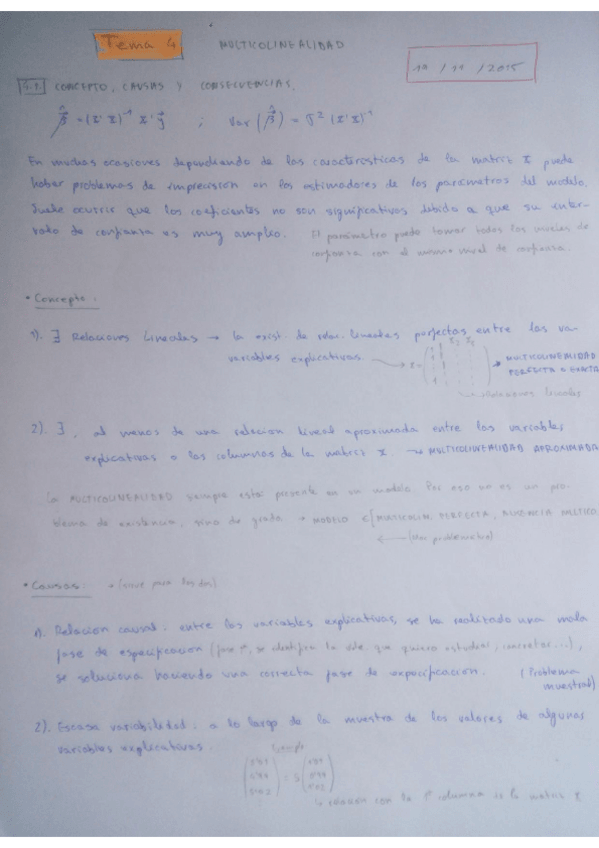 Tema 4
MULTICOLINEALIDAD
19 / 11 / 2015
4.1. CONCEPTO, CAUSAS Y CONSECUENCIAS.
β̂ = (X'X)⁻¹ X'y ; Var (β̂) = σ² (X'X)⁻¹
En muchas ocasiones dependiendo de las características de la matriz X puede
haber problemas de imprecisión en los estimadores de los parámetros del modelo.
Suele ocurrir que los coeficientes no son significativos debido a que su inter-
valo de confianza es muy amplio. El parámetro puede tomar todos los niveles de
confianza con el mismo nivel de confianza.
• Concepto:
1). ∃ Relaciones Lineales → la exist. de relac. lineales perfectas entre las va-
variables explicativas. → X =
→ MULTICOLINEALIDAD
PERFECTA o EXACTA
Relaciones Lineales
2). ∃, al menos de una relación lineal aproximada entre las variables
explicativas o las columnas de la matriz X. → MULTICOLINEALIDAD APROXIMADA
La MULTICOLINEALIDAD siempre está presente en un modelo. Por eso no es un pro-
blema de existencia, sino de grado → MODELO ∈ [MULTICOLIN. PERFECTA, AUSENCIA MULTICO.
• Causas: → (sirve para las dos)
1). Relación causal: entre las variables explicativas, se ha realizado una mala
fase de especificación (fase 1ª, se identifica la vble. que quiero estudiar, concretar...),
se soluciona haciendo una correcta fase de especificación. (Problema
muestral)
2). Escasa variabilidad: a lo largo de la muestra de los valores de algunas
variables explicativas.
Ejemplo
= 5
relación con la 1ª columna de la matriz X